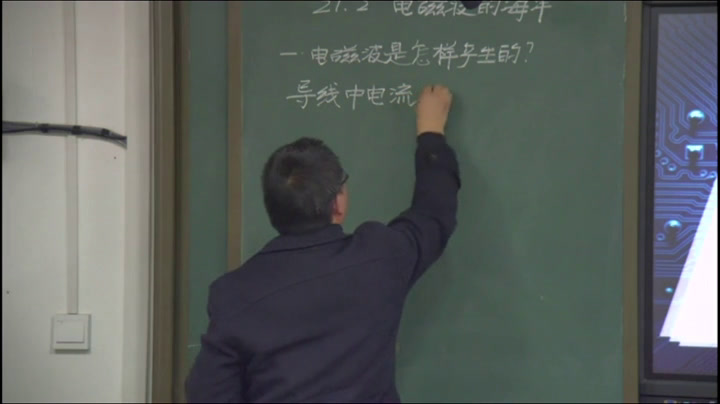 21.2 电磁波的海洋
一.电磁波是怎样产生的?
导线中电流